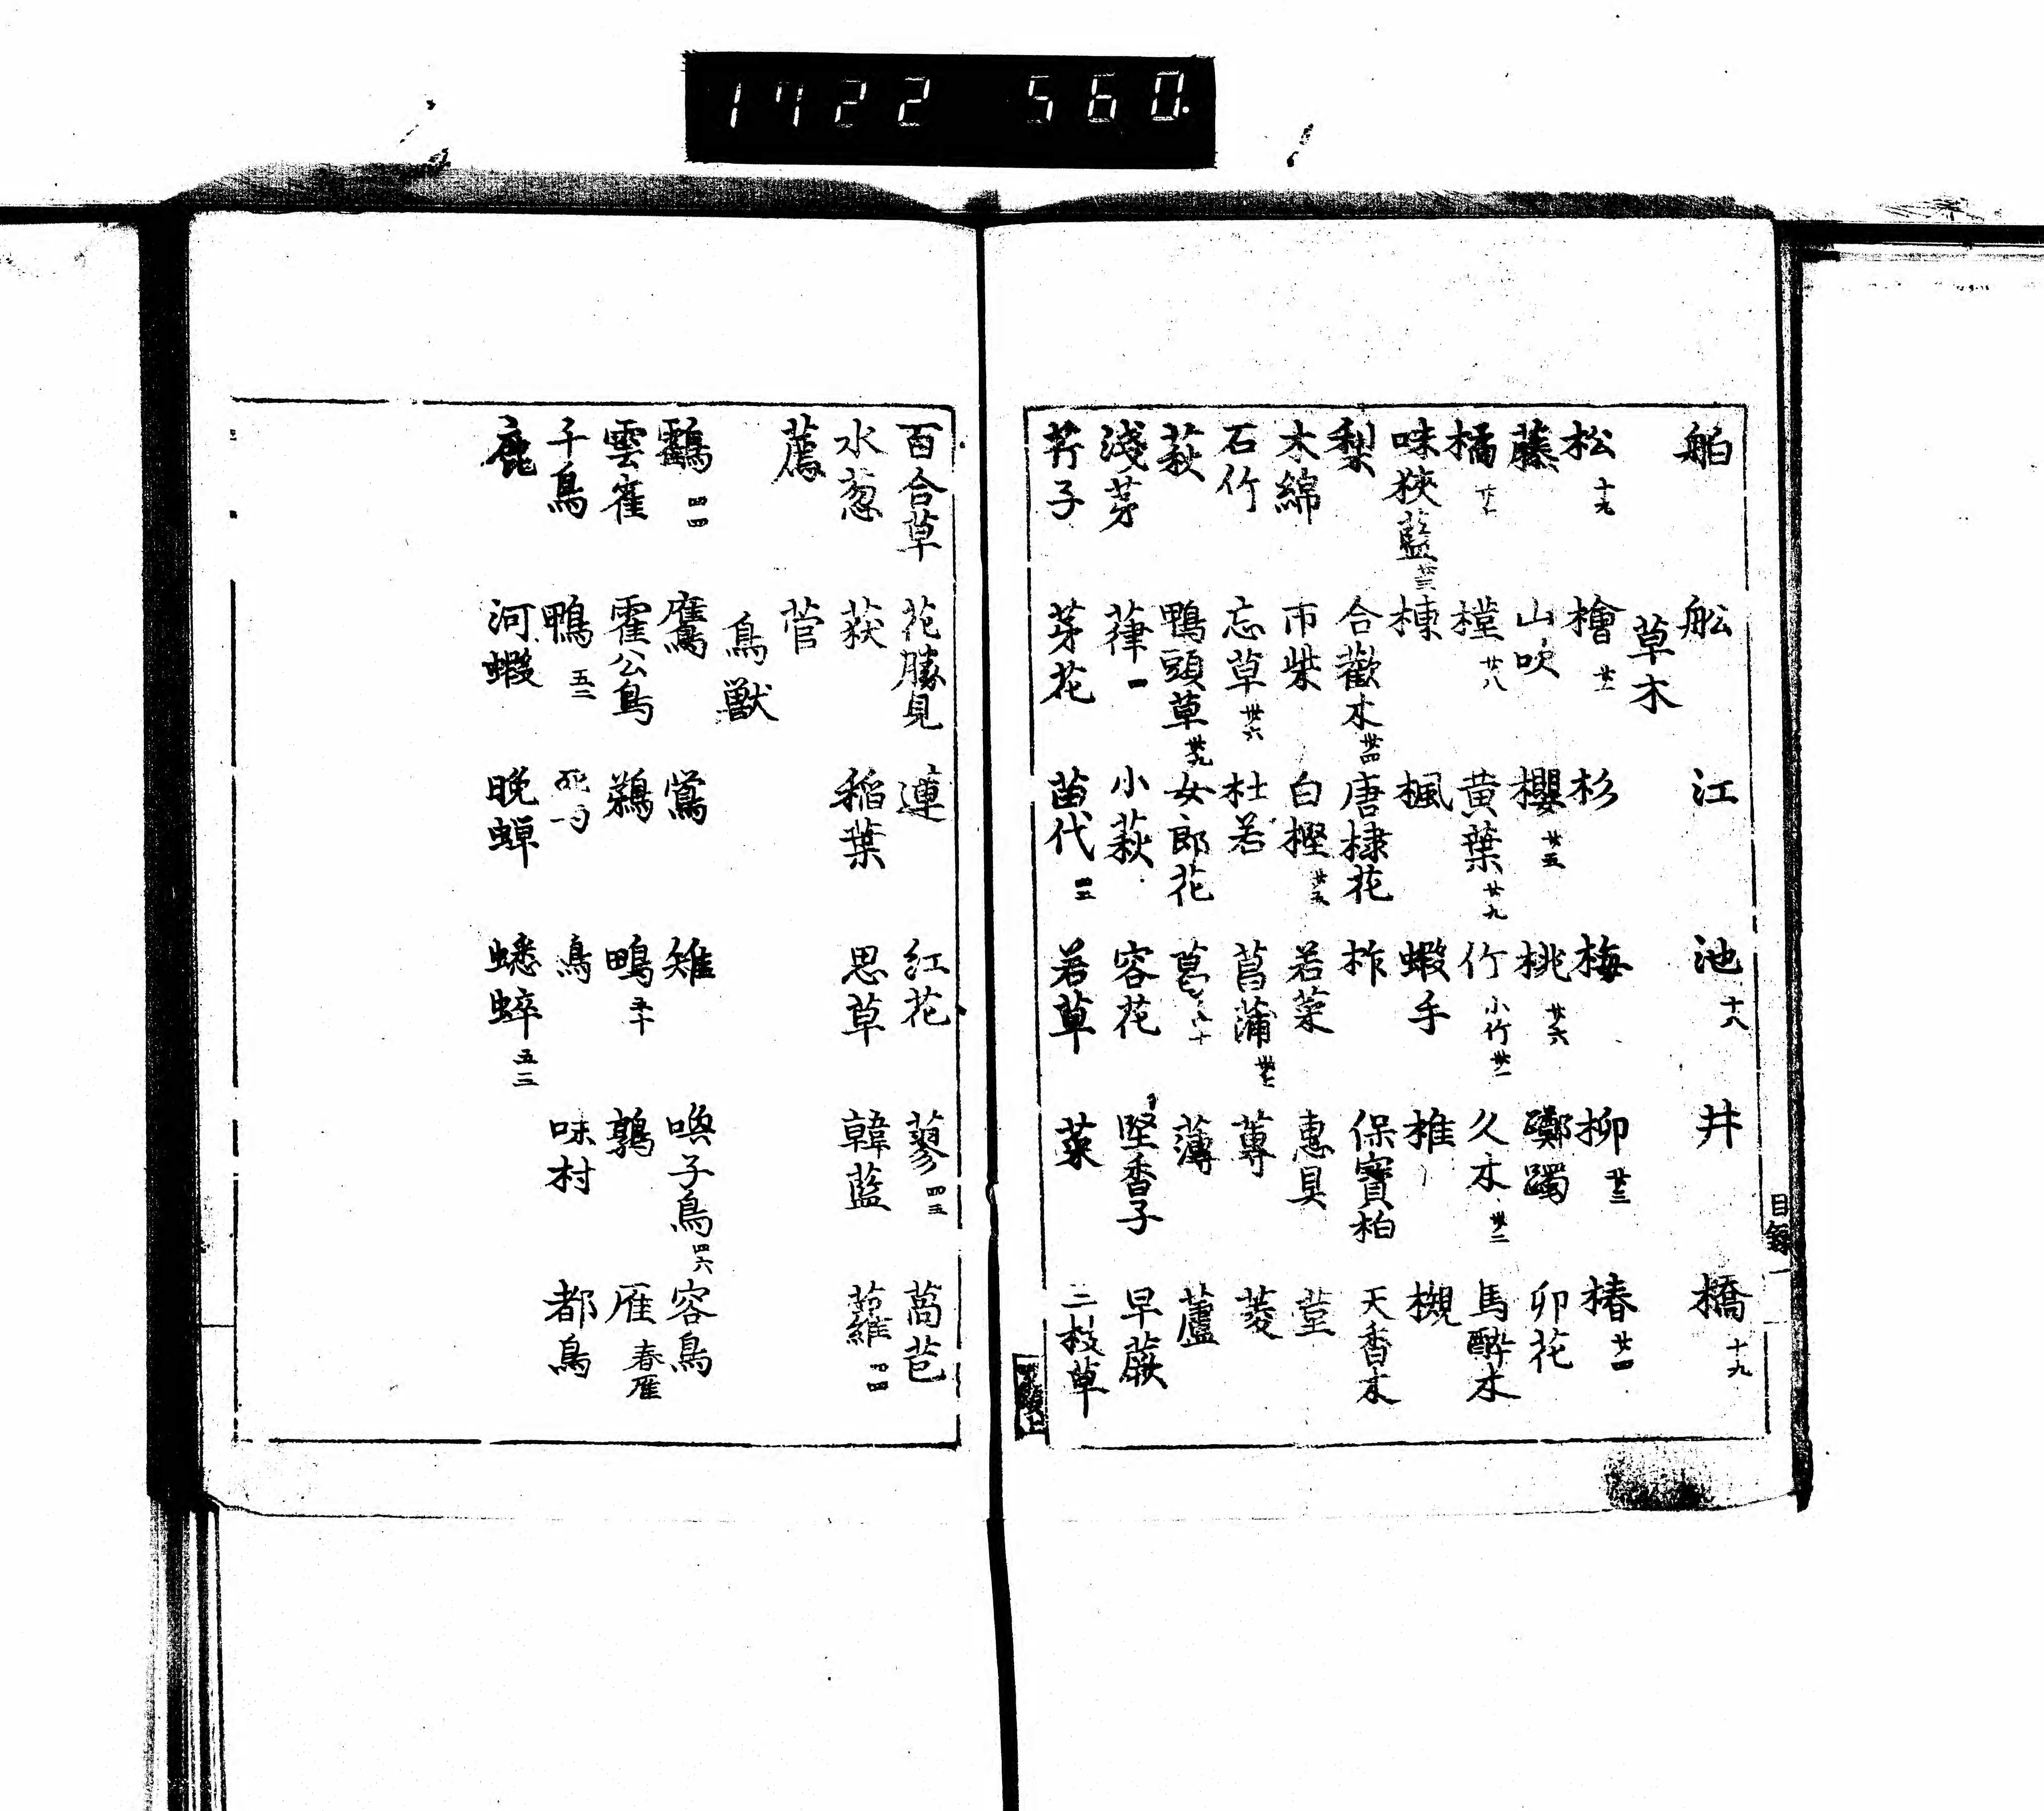 1722 560
舶 舩 江 池十八 井 橋十九
草木
松十九 檜廿一 杉 梅 柳廿三 椿廿四
藤 山吹 櫻廿五 桃廿六 躑躅 卯花
橘廿七 樘廿八 黄葉廿九 竹小竹卅一 久木卅二 馬醉木
味狹藍卅三 楝 楓 蝦手 椎 槻
梨 合歡木卅四 唐棣花 柞 保寶柏 天香木
木綿 市柴 白樫卅五 若菜 惠具 莖
石竹 忘草卅六 杜若 菖蒲卅七 蓴 菱
萩 鴨頭草卅九 女郎花 葛 薄 蘆
淺茅 葎 小萩 容花 堅香子 早蕨
芹子 茅花 苗代四三 若草 菜 三枝草
目録一
百合草 花勝見 蓮 紅花 蓼四三 萵苣
水葱 荻 稲葉 思草 韓藍 蘿四四
薦 菅
鳥獸
鶴四四 鷹 鶯 雉 喚子鳥四六 容鳥
雲雀 霍公鳥 鵜 鴫五十 鶉 雁春雁
千鳥 鴨五二 鳥 味村 都鳥
鹿 河蝦 晩蝉 蟋蟀五三